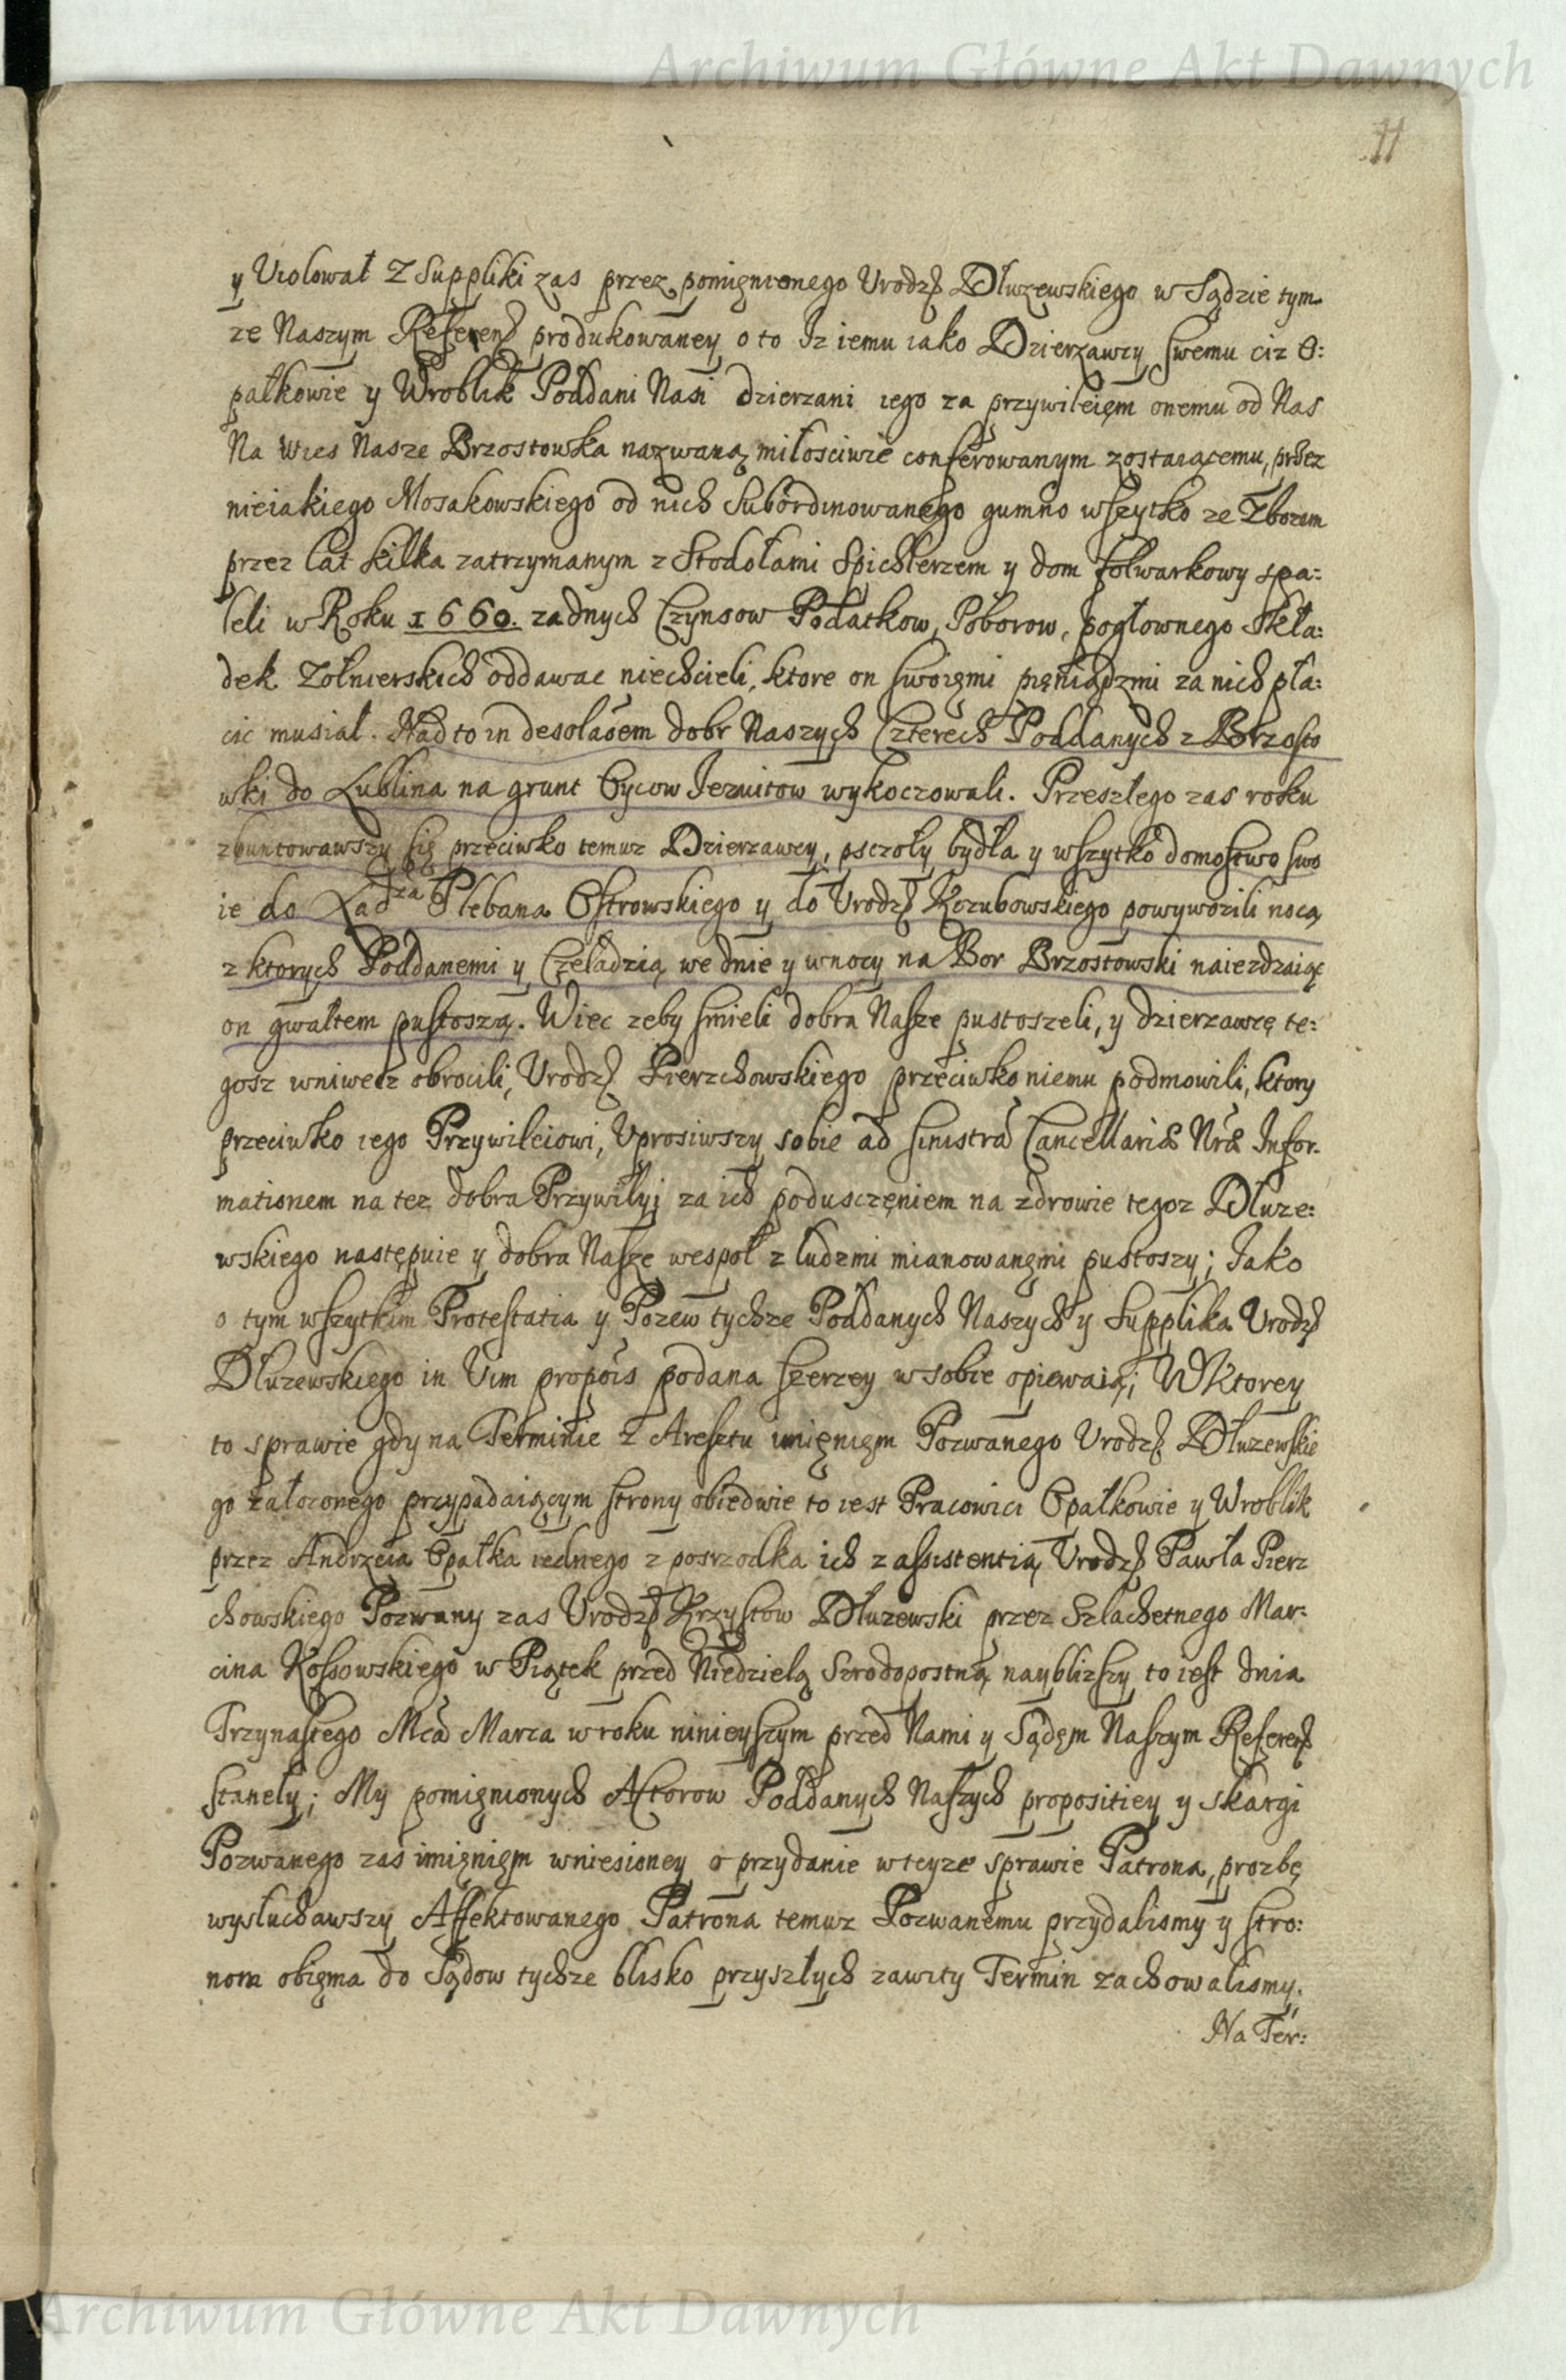 Archiwum Główne Akt Dawnych
11
y Violował Z Suppliki zas przez pomięnionego Urodz Dłuzewskiego w Sądzie tym
ze Naszym Referen produkowaney o to Iz iemu iako Dzierzawcy swemu ciz O:
pałkowie y Wroblik Poddani Nasi dzierzani iego za przywileięm onemu od Nas
Na Wies Nasze Brzostowka nazwaną miłosciwie conferowanym zostaiącemu, przez
nieiakiego Mosakowskiego od nich Subordinowanego gumno wszytko ze Zbozem
przez lat kilka zatrzymanym z Stodołami Spichlerzem y dom folwarkowy spa:
leli w Roku 1660. zadnych Czynsow Podatkow, Poborow, pogłownego Skła:
dek Zołnierskich oddawac niechcieli, ktore on swoięmi pięniądzmi za nich pła:
cic musiał. Nad to in desolaoem dobr Naszych Czterech Poddanych z Brzosto
wki do Lublina na grunt Oycow Iezuitow wykoczowali. Przeszłego zas roku
zbuntowawszy się przeciwko temuz Dzierzawcy, psczoły bydła y wszytko domostwo swo
ie do Xdza Plebana Ostrowskiego y do Urodz Kozubowskiego powywozili nocą
z ktorych Poddanemi y Czeladzią we dnie y w nocy na Bor Brzostowski naiezdzaiąc
on gwałtem pustoszą. Wiec zeby smieli dobra Nasze pustoszeli, y dzierzawcę te:
gosz wniwecz obrocili, Urodz Pierzchowskiego przeciwko niemu podmowili, ktory
przeciwko iego Przywileiowi, Uprosiwszy sobie ad sinistra Cancellariæ Nræ Infor-
mationem na tez dobra Przywilyi za ich poduszczęniem na zdrowie tegoz Dłuze:
wskiego następuie y dobra Nasze wespoł z ludzmi mianowanęmi pustoszy; Iako
o tym wszytkim Protestatia y Pozew tychze Poddanych Naszych y Supplika Urodz
Dłuzewskiego in Vim propois podana szerzey w sobie opiewaią; W Ktorey
to sprawie gdy na Terminie z Aresztu imięnięm Pozwanego Urodz Dłuzewskie
go załozonego przypadaiącym strony obiedwie to iest Pracowici Opałkowie y Wroblik
przez Andrzeia Opałka iednego z posrzodka ich z assistentią Urodz Pawła Pierz
chowskiego Pozwany zas Urodz Krzysztow Dłuzewski przez Szlachetnego Mar:
cina Kossowskiego w Piątek przed Niedzielą Srodopostną naybliszy to iest dnia
Trzynastego Mca Marca w roku ninieyszym przed Nami y Sądęm Naszym Referen
stanely; My pomięnionych Actorow Poddanych Naszych propositiey y skargi
Pozwanego zas imięnięm wniesioney o przydanie w teyze sprawie Patrona, prozbę
wysłuchawszy Affektowanego Patrona temuz Pozwanemu przydalismy y stro:
nom obięma do Sądow tychze blisko przyszłych zawity Termin zachowalismy.
Na Ter:
Archiwum Główne Akt Dawnych